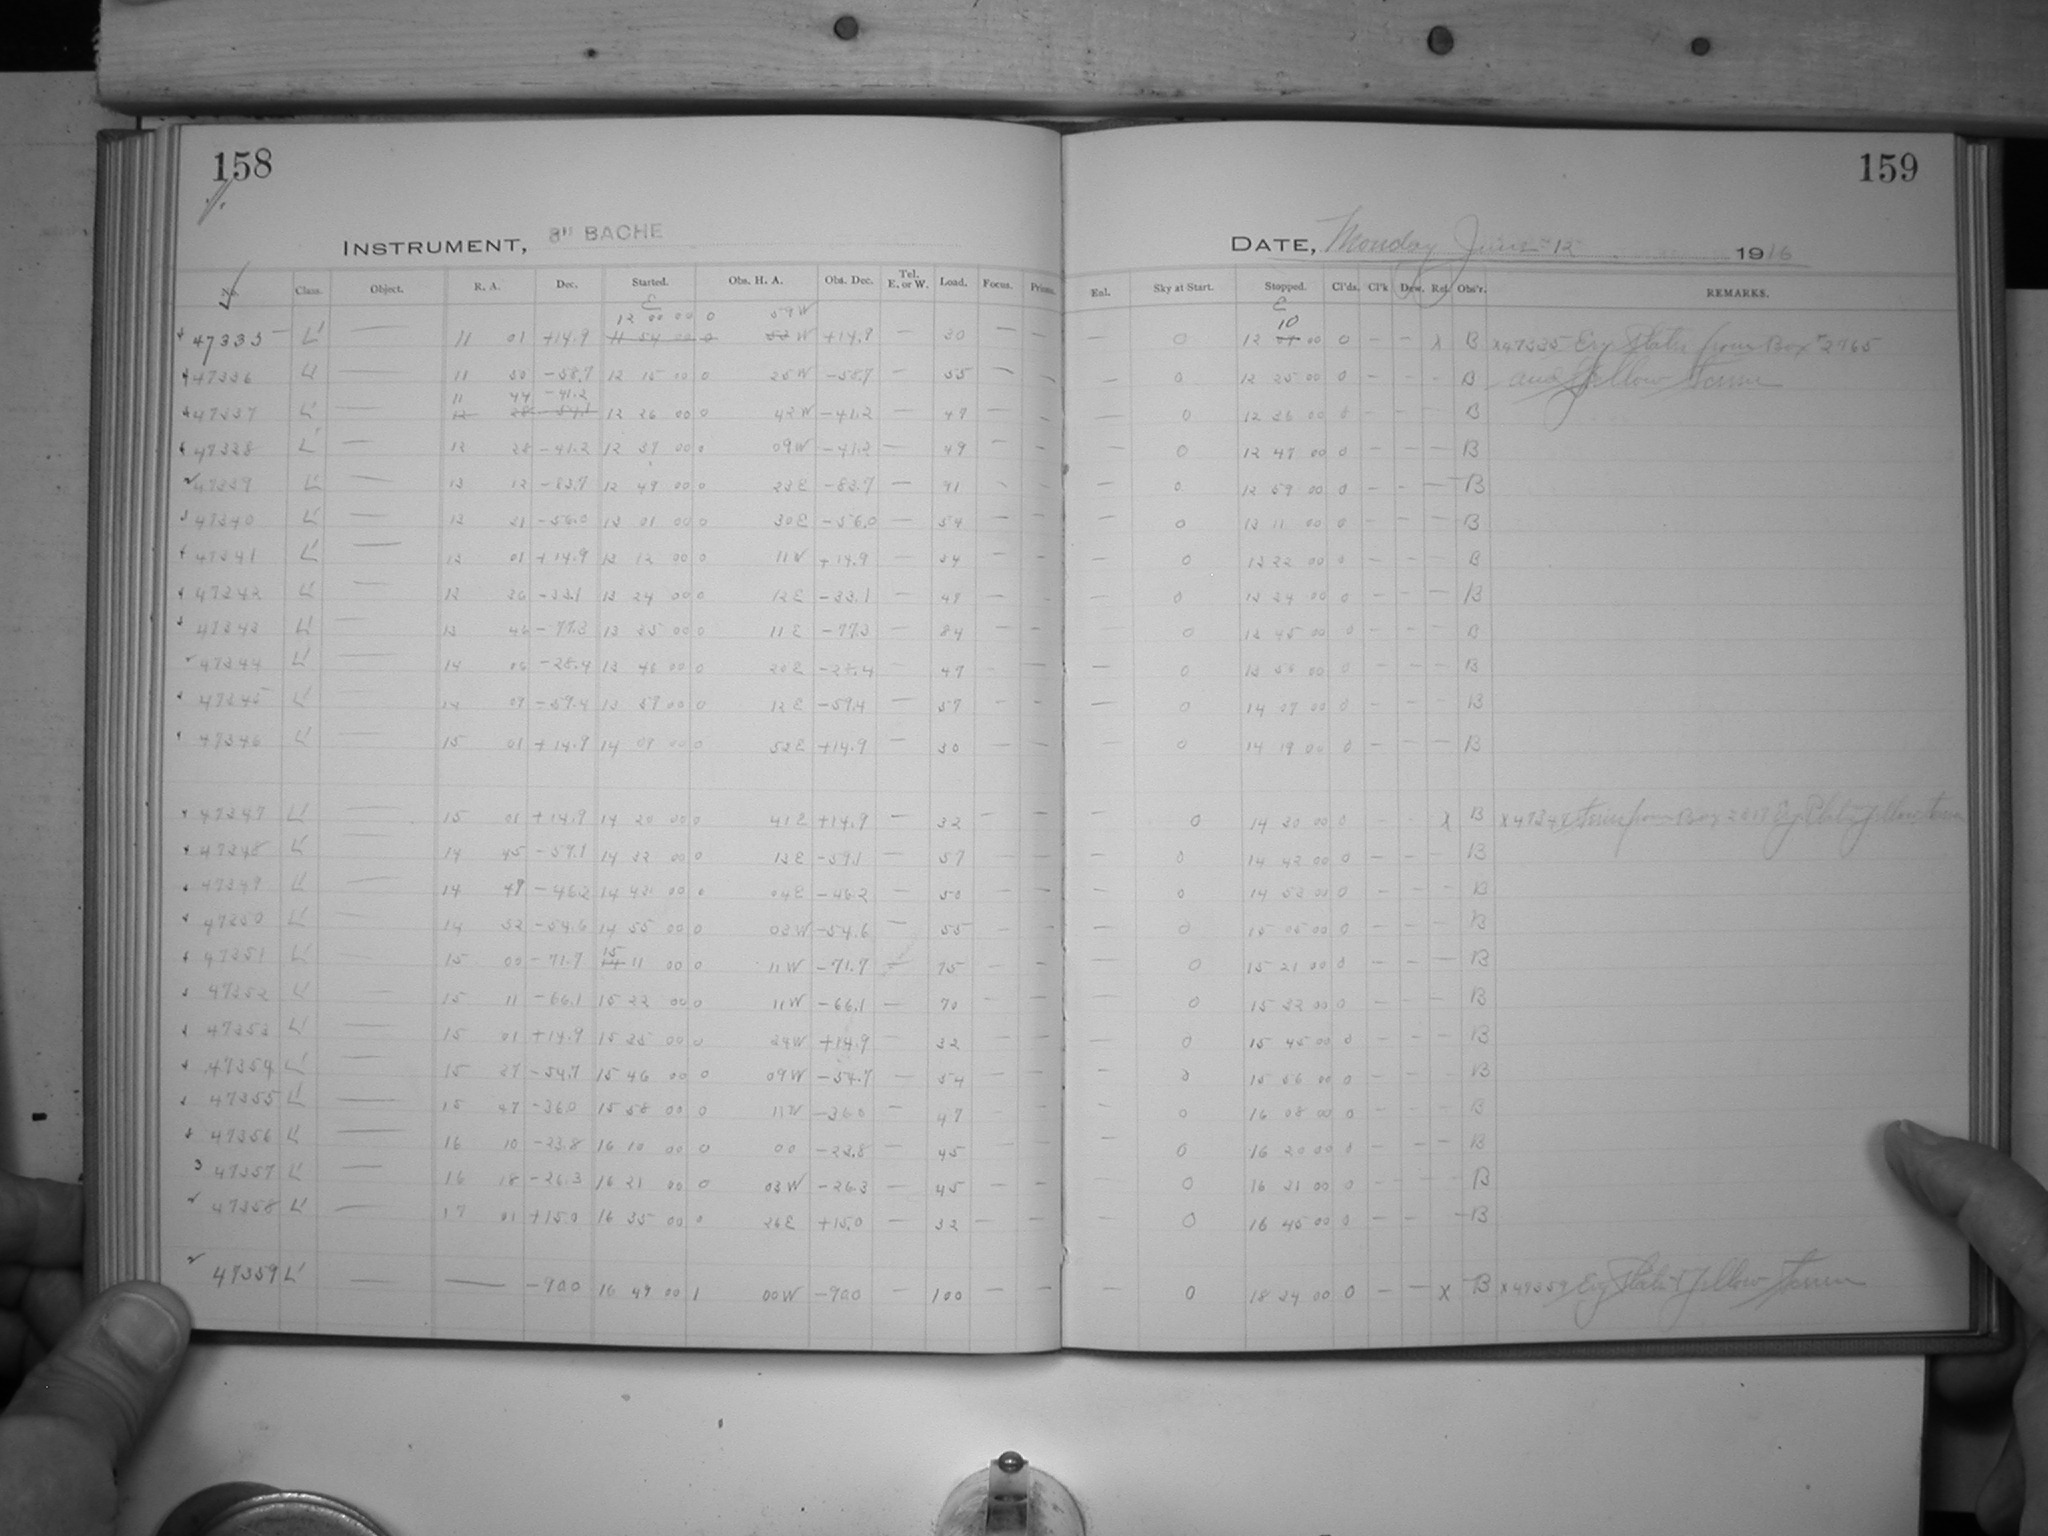 158
159
INSTRUMENT, 8" BACHE
DATE, Monday June 12 1916
No. Class. Object. R. A. Dec. Started. Obs. H. A. Obs. Dec. Tel. E. or W. Load. Focus. Prisms. Enl. Sky at Start. Stopped. Cl'ds. Cl'k Dew. Ref. Obs'r. REMARKS.
E 12 00 00 0 59W E 10
47335 L' — 11 01 +14.9 11 54 00 0 53 W +14.9 — 30 — — — 0 12 04 00 0 — — x B x47335 Ery Plates from Box 2965
47336 L' — 11 50 -58.7 12 15 00 0 25W -58.7 — 55 — — — 0 12 25 00 0 — — — B and Yellow Screen
11 44 -41.2
47337 L' — 12 28 12 26 00 0 42W -41.2 — 47 — — — 0 12 36 00 0 — — — B
47338 L' — 12 28 -41.2 12 37 00 0 09W -41.2 — 49 — — — 0 12 47 00 0 — — — B
47339 L' — 13 12 -83.7 12 49 00 0 23E -83.7 — 91 — — — 0 12 59 00 0 — — — B
47340 L' — 13 31 -56.0 13 01 00 0 30E -56.0 — 54 — — — 0 13 11 00 0 — — — B
47341 L' — 13 01 +14.9 13 12 00 0 11W +14.9 — 34 — — — 0 13 22 00 0 — — — B
47342 L' — 13 36 -33.1 13 24 00 0 12E -33.1 — 47 — — — 0 13 34 00 0 — — — B
47343 L' — 13 46 -77.3 13 35 00 0 11E -77.3 — 84 — — — 0 13 45 00 0 — — — B
47344 L' — 14 06 -28.4 13 46 00 0 20E -28.4 — 47 — — — 0 13 56 00 0 — — — B
47345 L' — 14 09 -59.4 13 57 00 0 12E -59.4 — 57 — — — 0 14 07 00 0 — — — B
47346 L' — 15 01 +14.9 14 09 00 0 52E +14.9 — 30 — — — 0 14 19 00 0 — — — B
47347 L' — 15 01 +14.9 14 20 00 0 41E +14.9 — 32 — — — 0 14 30 00 0 — — x B x47347 from Box Ery Plate Yellow Screen
47348 L' — 14 45 -59.1 14 32 00 0 13E -59.1 — 57 — — — 0 14 42 00 0 — — — B
47349 L' — 14 48 -46.2 14 43 00 0 04E -46.2 — 50 — — — 0 14 53 00 0 — — — B
47350 L' — 14 52 -54.6 14 55 00 0 03W -54.6 — 55 — — — 0 15 05 00 0 — — — B
47351 L' — 15 00 -71.7 15 11 00 0 11W -71.7 — 75 — — — 0 15 21 00 0 — — — B
47352 L' — 15 11 -66.1 15 22 00 0 11W -66.1 — 70 — — — 0 15 32 00 0 — — — B
47353 L' — 15 01 +14.9 15 35 00 0 34W +14.9 — 32 — — — 0 15 45 00 0 — — — B
47354 L' — 15 37 -54.7 15 46 00 0 09W -54.7 — 54 — — — 0 15 56 00 0 — — — B
47355 L' — 15 47 -36.0 15 58 00 0 11W -36.0 — 47 — — — 0 16 08 00 0 — — — B
47356 L' — 16 10 -23.8 16 10 00 0 00 -23.8 — 45 — — — 0 16 20 00 0 — — — B
47357 L' — 16 18 -26.3 16 21 00 0 03W -26.3 — 45 — — — 0 16 31 00 0 — — — B
47358 L' — 17 01 +15.0 16 35 00 0 26E +15.0 — 32 — — — 0 16 45 00 0 — — — B
47359 L' — — -90.0 16 49 00 1 00W -90.0 — 100 — — — 0 18 24 00 0 — — x B x47359 Ery Plate & Yellow Screen